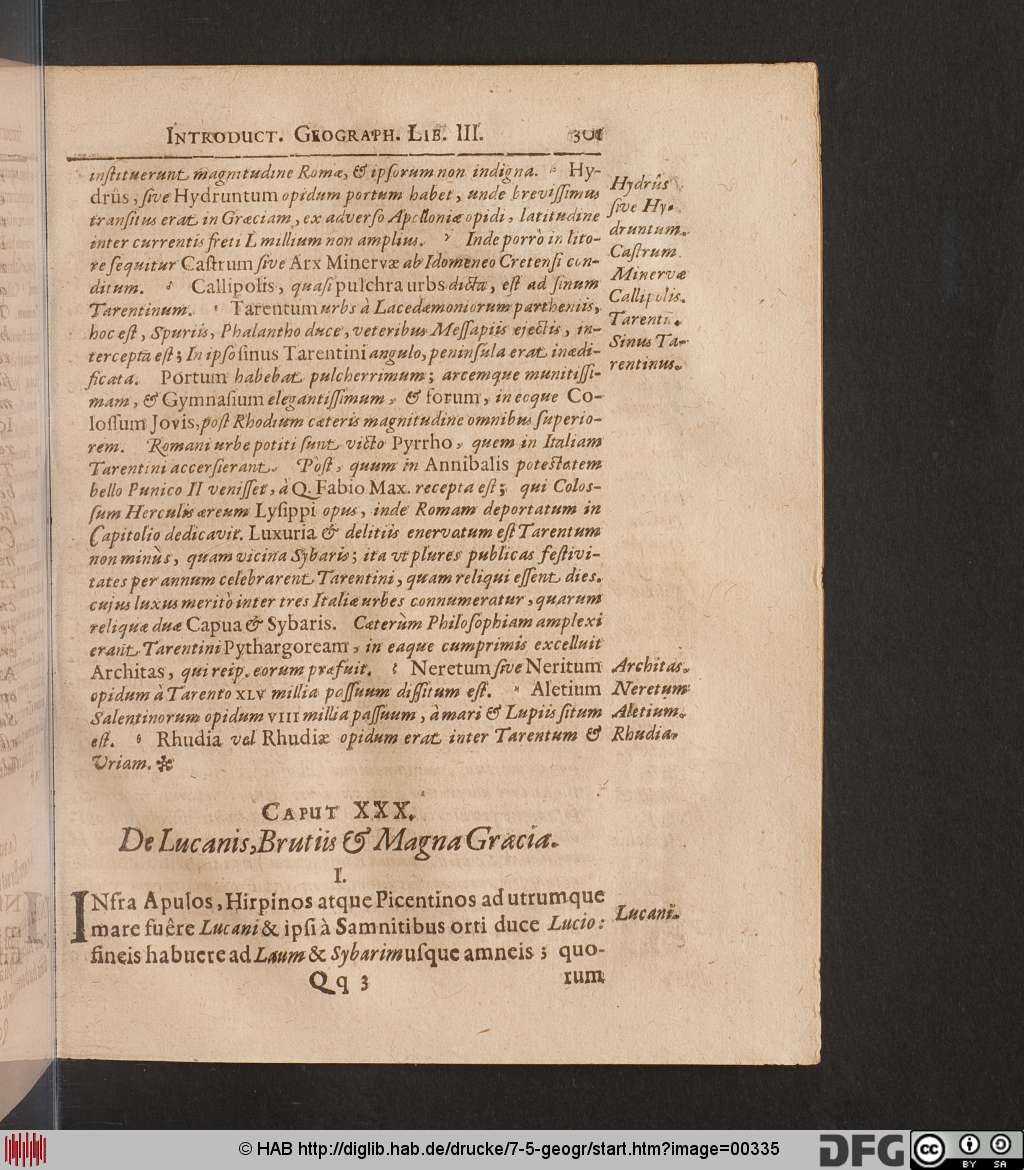 INTRODUCT. GEOGRAPH. LIB. III. 301
instituerunt magnitudine Romæ, & ipsorum non indigna. Hy-
drûs, sive Hydruntum opidum portum habet, unde brevissimus
transitus erat in Græciam, ex adverso Apolloniæ opidi, latitudine
inter currentis freti L millium non amplius. Inde porrò in lito-
re sequitur Castrum sive Arx Minervæ ab Idomeneo Cretensi con-
ditum. Callipolis, quasi pulchra urbs dicta, est ad sinum
Tarentinum. Tarentum urbs à Lacedæmoniorum partheniis,
hoc est, Spuriis, Phalantho duce, veteribus Messapiis ejectis, in-
tercepta est; In ipso sinus Tarentini angulo, peninsula erat inædi-
ficata. Portum habebat pulcherrimum; arcemque munitissi-
mam, & Gymnasium elegantissimum, & forum, in eoque Co-
lossum Jovis, post Rhodium cæteris magnitudine omnibus superio-
rem. Romani urbe potiti sunt victo Pyrrho, quem in Italiam
Tarentini accersierant. Post, quum in Annibalis potestatem
bello Punico II venisset, à Q. Fabio Max. recepta est; qui Colos-
sum Herculis æreum Lysippi opus, inde Romam deportatum in
Capitolio dedicavit. Luxuria & delitiis enervatum est Tarentum
non minùs, quam vicina Sybaris; ita vt plures publicas festivi-
tates per annum celebrarent Tarentini, quam reliqui essent dies.
cujus luxus meritò inter tres Italiæ urbes connumeratur, quarum
reliquæ duæ Capua & Sybaris. Cæterùm Philosophiam amplexi
erant Tarentini Pythargoream, in eaque cumprimis excelluit
Architas, qui reip. eorum præfuit. Neretum sive Neritum
opidum à Tarento XLV millia passuum dissitum est. Aletium
Salentinorum opidum VIII millia passuum, à mari & Lupiis situm
est. Rhudia vel Rhudiæ opidum erat inter Tarentum &
Uriam.*
Hydrûs
sive Hy-
druntum.
Castrum
Minervæ
Callipolis.
Tarentū.
Sinus Ta-
rentinus.
Architas.
Neretum
Aletium.
Rhudia.
CAPUT XXX.
De Lucanis, Brutiis & Magna Græcia.
I.
INfra Apulos, Hirpinos atque Picentinos ad utrumque
mare fuêre Lucani & ipsi à Samnitibus orti duce Lucio:
fineis habuere ad Laum & Sybarim usque amneis; quo-
Lucani.
Qq 3 rum
© HAB http://diglib.hab.de/drucke/7-5-geogr/start.htm?image=00335
DFG cc BY SA